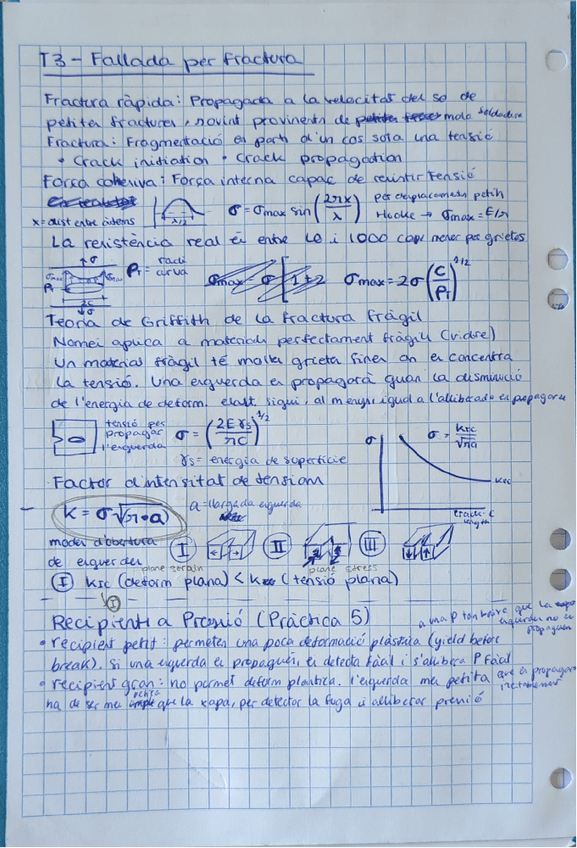 T3 - Fallada per fractura
Fractura ràpida: Propagada a la velocitat del so de
petites fractures, sovint provinents de mala soldadura
Fractura: Fragmentació en parts d'un cos sota una tensió
· Crack initiation · Crack propagation
Força cohesiva: Força interna capaç de resistir tensió
x = dist entre àtoms
λ/2
σ = σmax sin(2πx/λ)
per desplaçaments petits
Hooke → σmax = E/π
La resistència real és entre 10 i 1000 cops menor per grietes
σ
σmax
ρt
2c
σ
ρt = radi curva
σmax = 2σ(c/ρt)^1/2
Teoria de Griffith de la fractura fràgil
Només aplica a materials perfectament fràgils (vidre)
Un material fràgil té moltes grietes fines on es concentra
la tensió. Una esquerda es propagarà quan la disminució
de l'energia de deform. elast. sigui, al menys, igual a l'alliberada es propagarà
tensió per
propagar
l'esquerda
σ = (2Eγs/πc)^1/2
γs = energia de superfície
σ
σ = KIC/√πa
KIC
Crack length
Factor d'intensitat de tensions
K = σ√(π·a)
a = llargada esquerda
modes d'obertura
de esquerdes
I
II
III
plane strain
plane stress
I KIC (deform plana) < K (tensió plana)
I
Recipients a Pressió (Pràctica 5)
· recipient petit: permeten una poca deformació plàstica (yield before
break). Si una esquerda es propagués, es detecta fàcil i s'allibera P fàcil
a una P tan baixa que la
esquerda no es
propagarà
· recipient gran: no permet deform plàstica. l'esquerda més petita que es propagar
ha de ser més petita que la xapa, per detectar la fuga i alliberar pressió